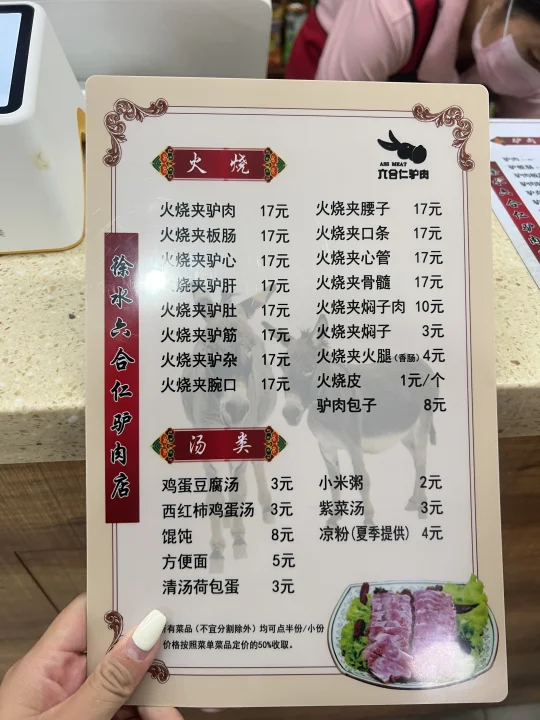 火烧
ASS MEAT
六合仁驴肉
徐水六合仁驴肉店
火烧夹驴肉 17元
火烧夹板肠 17元
火烧夹驴心 17元
火烧夹驴肝 17元
火烧夹驴肚 17元
火烧夹驴筋 17元
火烧夹驴杂 17元
火烧夹腕口 17元
火烧夹腰子 17元
火烧夹口条 17元
火烧夹心管 17元
火烧夹骨髓 17元
火烧夹焖子肉 10元
火烧夹焖子 3元
火烧夹火腿(香肠) 4元
火烧皮 1元/个
驴肉包子 8元
汤类
鸡蛋豆腐汤 3元
西红柿鸡蛋汤 3元
馄饨 8元
方便面 5元
清汤荷包蛋 3元
小米粥 2元
紫菜汤 3元
凉粉(夏季提供) 4元
所有菜品（不宜分割除外）均可点半份/小份
价格按照菜单菜品定价的50%收取。